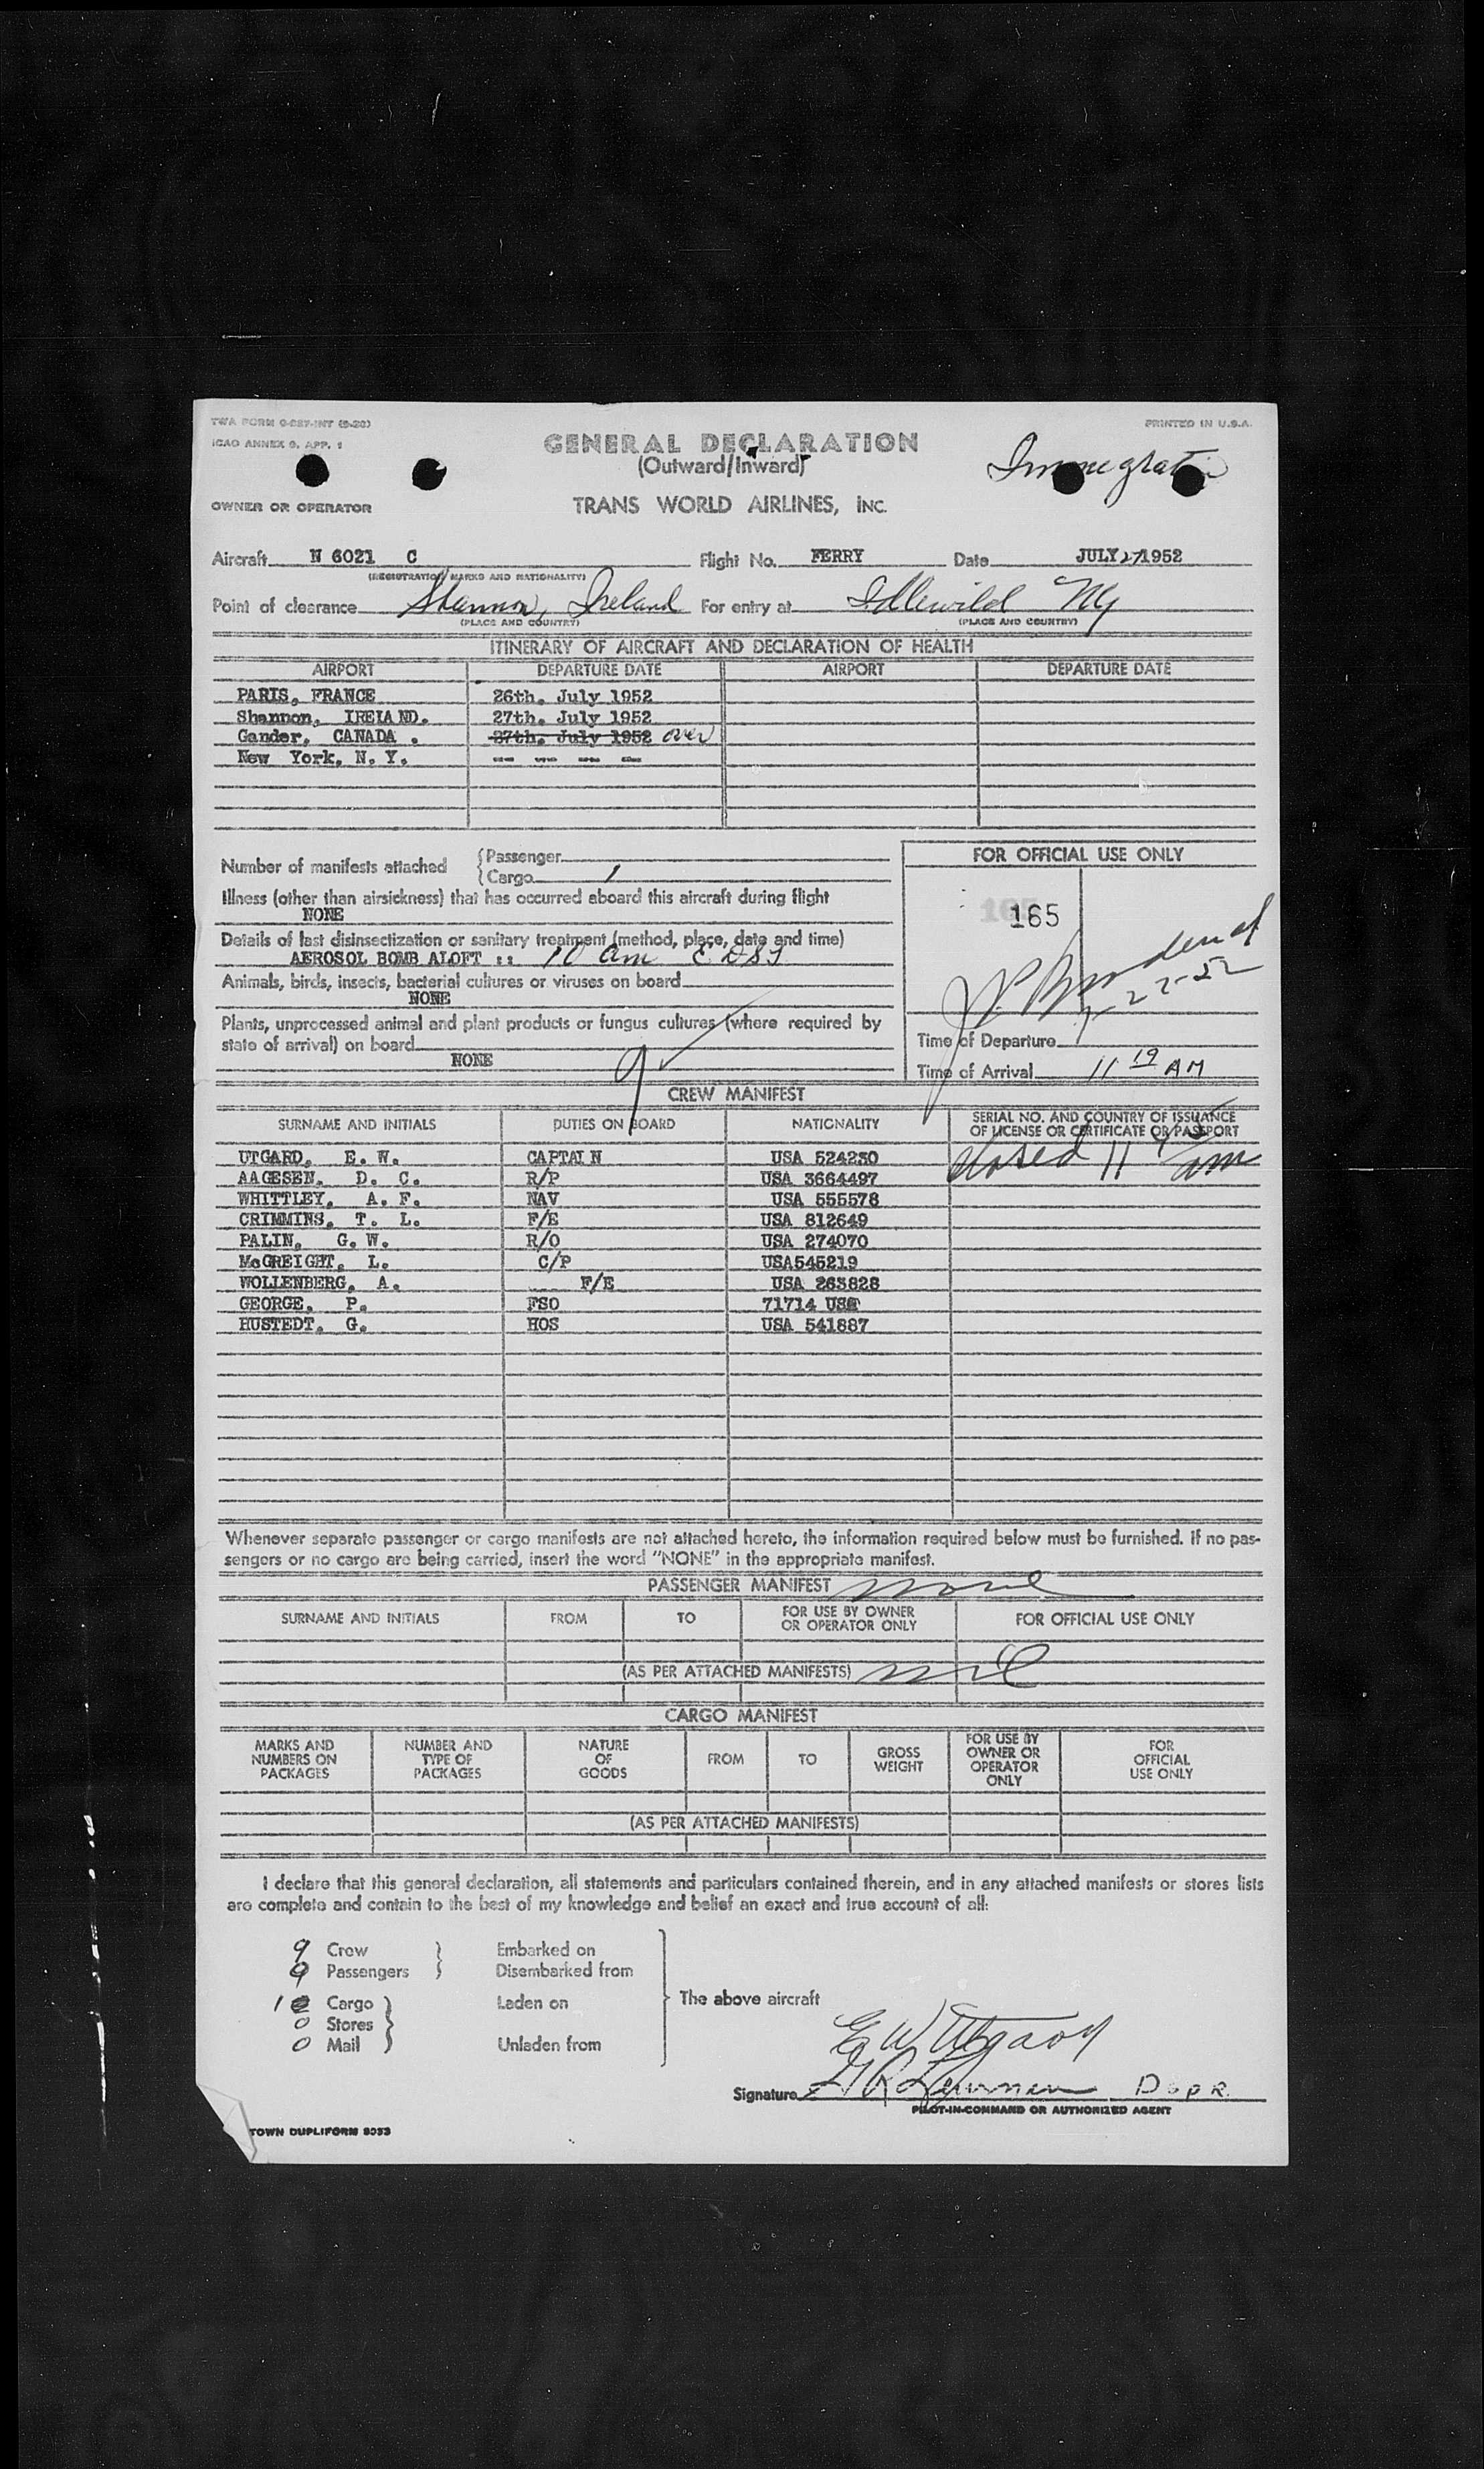 TWA FORM 0-027-INT (5-20)
PRINTED IN U.S.A.
ICAO ANNEX 9, APP. 1
GENERAL DECLARATION
(Outward/Inward)
Immigratio
OWNER OR OPERATOR
TRANS WORLD AIRLINES, INC.
Aircraft N 6021 C Flight No. FERRY Date JULY 27 1952
(REGISTRATION MARKS AND NATIONALITY)
Point of clearance Shannon, Ireland For entry at Idlewild NY
(PLACE AND COUNTRY) (PLACE AND COUNTRY)
ITINERARY OF AIRCRAFT AND DECLARATION OF HEALTH
AIRPORT DEPARTURE DATE AIRPORT DEPARTURE DATE
PARIS, FRANCE 26th. July 1952
Shannon, IRELAND. 27th. July 1952
Gander, CANADA . 27th. July 1952 over
New York, N. Y. - - - -
Number of manifests attached
Passenger
Cargo 1
Illness (other than airsickness) that has occurred aboard this aircraft during flight
NONE
Details of last disinsectization or sanitary treatment (method, place, date and time)
AEROSOL BOMB ALOFT :: 10 am EDST
Animals, birds, insects, bacterial cultures or viruses on board
NONE
Plants, unprocessed animal and plant products or fungus cultures (where required by
state of arrival) on board
NONE
9
FOR OFFICIAL USE ONLY
165
165
7-27-52
Time of Departure
Time of Arrival 11 19 AM
CREW MANIFEST
SURNAME AND INITIALS DUTIES ON BOARD NATIONALITY SERIAL NO. AND COUNTRY OF ISSUANCE
OF LICENSE OR CERTIFICATE OR PASSPORT
closed 11 45 am
UTGARD, E. W. CAPTAIN USA 524230
AAGESEN, D. C. R/P USA 3664497
WHITTLEY, A. F. NAV USA 555578
CRIMMINS, T. L. F/E USA 812649
PALIN, G. W. R/O USA 274070
McGREIGHT, L. C/P USA545219
WOLLENBERG, A. F/E USA 263828
GEORGE, P. FSO 71714 USA
HUSTEDT, G. HOS USA 541887
Whenever separate passenger or cargo manifests are not attached hereto, the information required below must be furnished. If no pas-
sengers or no cargo are being carried, insert the word "NONE" in the appropriate manifest.
PASSENGER MANIFEST none
SURNAME AND INITIALS FROM TO FOR USE BY OWNER
OR OPERATOR ONLY FOR OFFICIAL USE ONLY
(AS PER ATTACHED MANIFESTS) nil
CARGO MANIFEST
MARKS AND
NUMBERS ON
PACKAGES
NUMBER AND
TYPE OF
PACKAGES
NATURE
OF
GOODS
FROM
TO
GROSS
WEIGHT
FOR USE BY
OWNER OR
OPERATOR
ONLY
FOR
OFFICIAL
USE ONLY
(AS PER ATTACHED MANIFESTS)
I declare that this general declaration, all statements and particulars contained therein, and in any attached manifests or stores lists
are complete and contain to the best of my knowledge and belief an exact and true account of all:
9 Crew Embarked on
0 Passengers Disembarked from
1 Cargo Laden on
The above aircraft
0 Stores
0 Mail Unladen from
E W Utgard
Signature
PILOT-IN-COMMAND OR AUTHORIZED AGENT
TOWN DUPLIFORM 8053